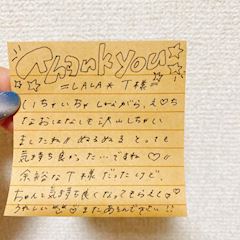 Thank you
=LALA* T様=
いちゃいちゃしながら、え♡ち
なおはなしも沢山しちゃい
ましたね!!ぬるぬるとっても
気持ち良かった…ですね♡!!
余裕なT様だったけど、
ちゃんと気持ち良くなってもらえて♡
うれしい またあそんで下さい!!